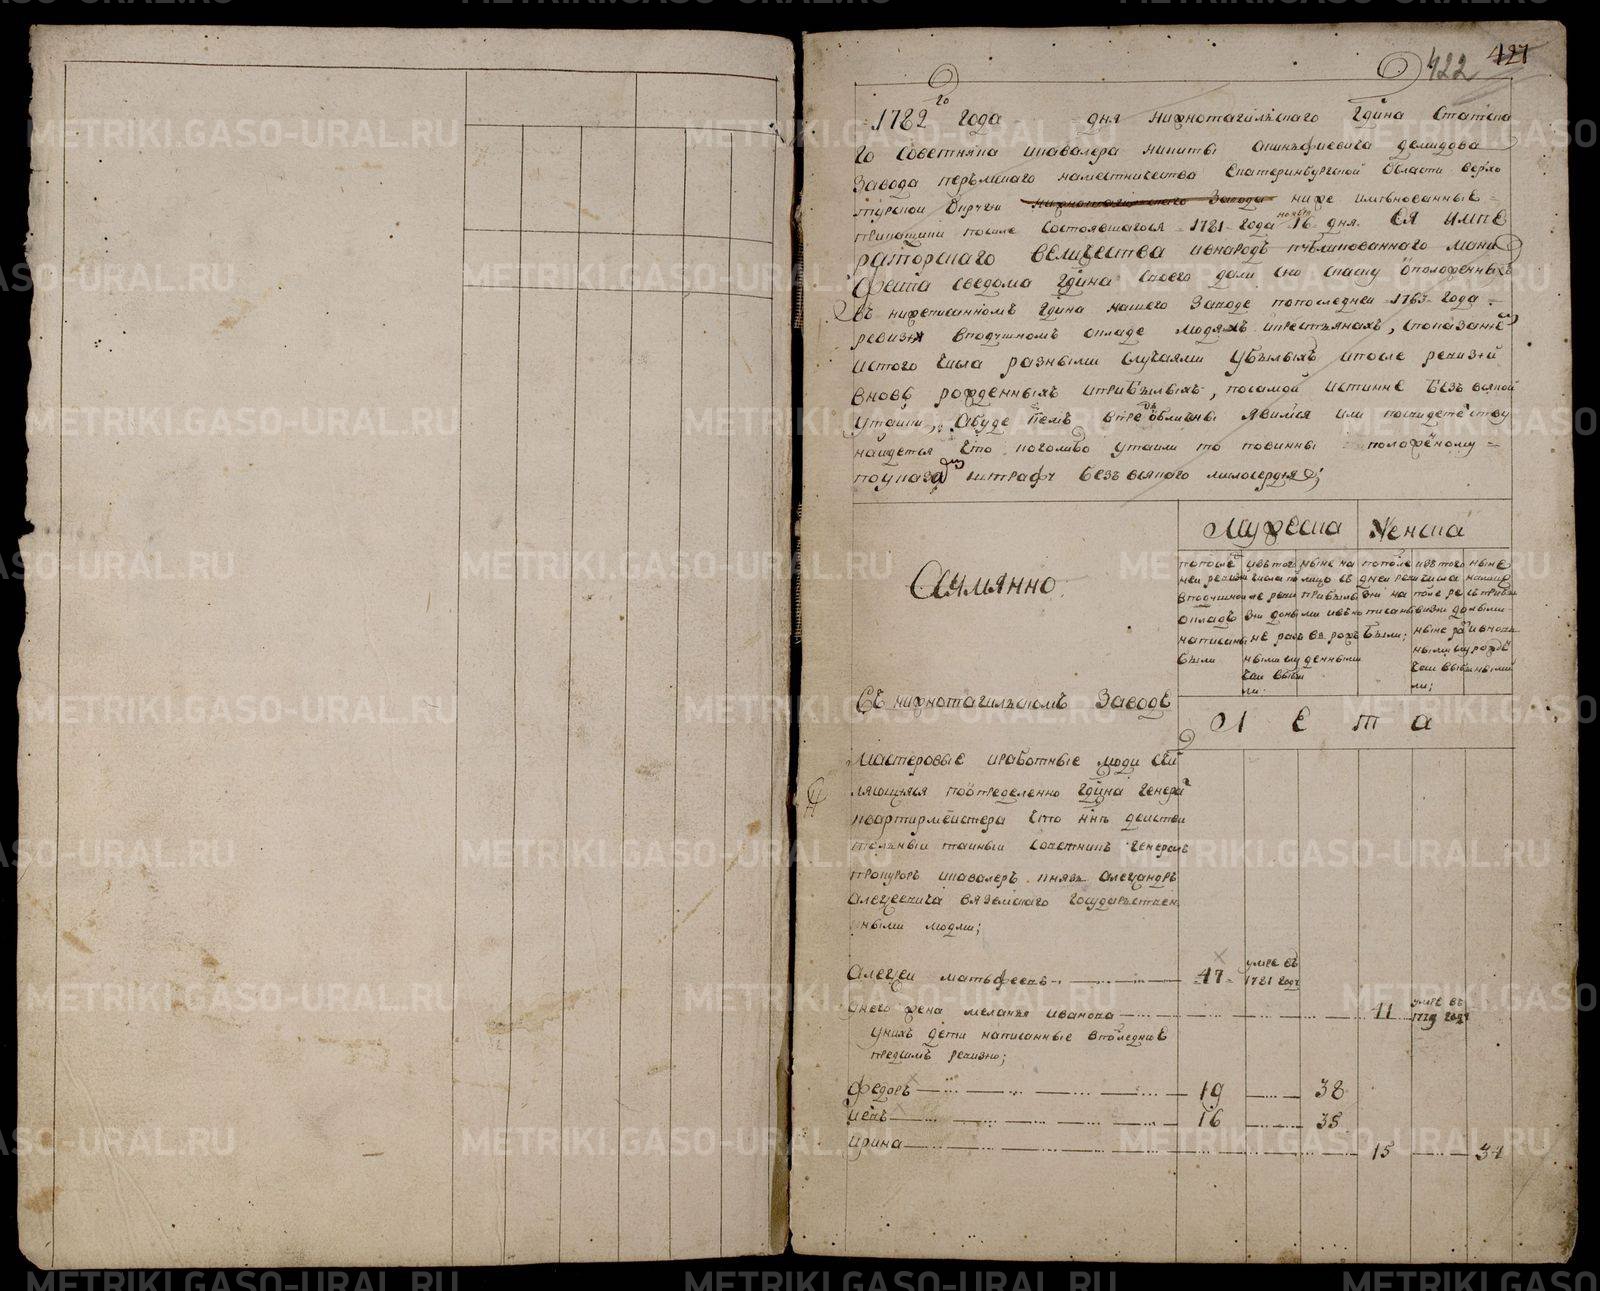 422 427
1782 го года дня нижнотагилъскаго Гдина Статска
го Советника икавалера никиты акинфиевича демидова
Завода перъмскаго наместничества Екатеринбургской Области верхо
турской Округи нижнотагилского Завода ниже имянованные
прикащики после состоявшагося 1781 года ноября 16 дня. ЕЯ ИМПЕ
раторскаго ВЕЛИЧЕСТВА внародъ публикованнаго мани
феста сведома Гдина своего дали сию скаску ѡположенныхъ
въ нижеписанномъ Гдина нашего Заводе попоследней 1763 года
ревизи вподушномъ окладе людяхъ икрестьянахъ, споказание
истого числа разными случаями убылыхъ ипосле ревизи
вновь рожденныхъ иприбылыхъ, посамой истинне безъ всякой
утайки, Абуде кемъ впредь обличены явимся или посвидетелству
найдется что коголибо утаили то повинны положеному
поуказам штрафу безъ всякаго милосердия;
Мужеска Женска
Аимянно:
попосле ней ревизи вподушном окладѣ написаны были
изтого числа после ревизи доныне разными случаи выбыли:
ныне налицо съ прибылыми ивновь рожденными
попоследней ревизи написаны были;
изтого числа после ревизи доныне разными случаи выбыли;
ныне налицо съприбылыми ивновь рожденными
Въ нижнотагилъскомъ Заводѣ
Лета
Мастеровые иработные люди сей
ляющияся поопределению Гдина Генерал
квартирмейстера что ннѣ действи
телъный тайный Советникъ генералъ
прокуроръ икавалеръ князь Александръ
Алексеевича вяземскаго государъствен
ными людми;
Алексей матвѣевъ 47 умре въ 1781 годъ
Унего жена меланья иванова 41 умре въ 1779 годъ
Унихъ дети написанные впоследнюю
предсимъ ревизию;
Федоръ 19 38
Иевъ 16 35
Ирина 15 34
METRIKI.GASO-URAL.RU